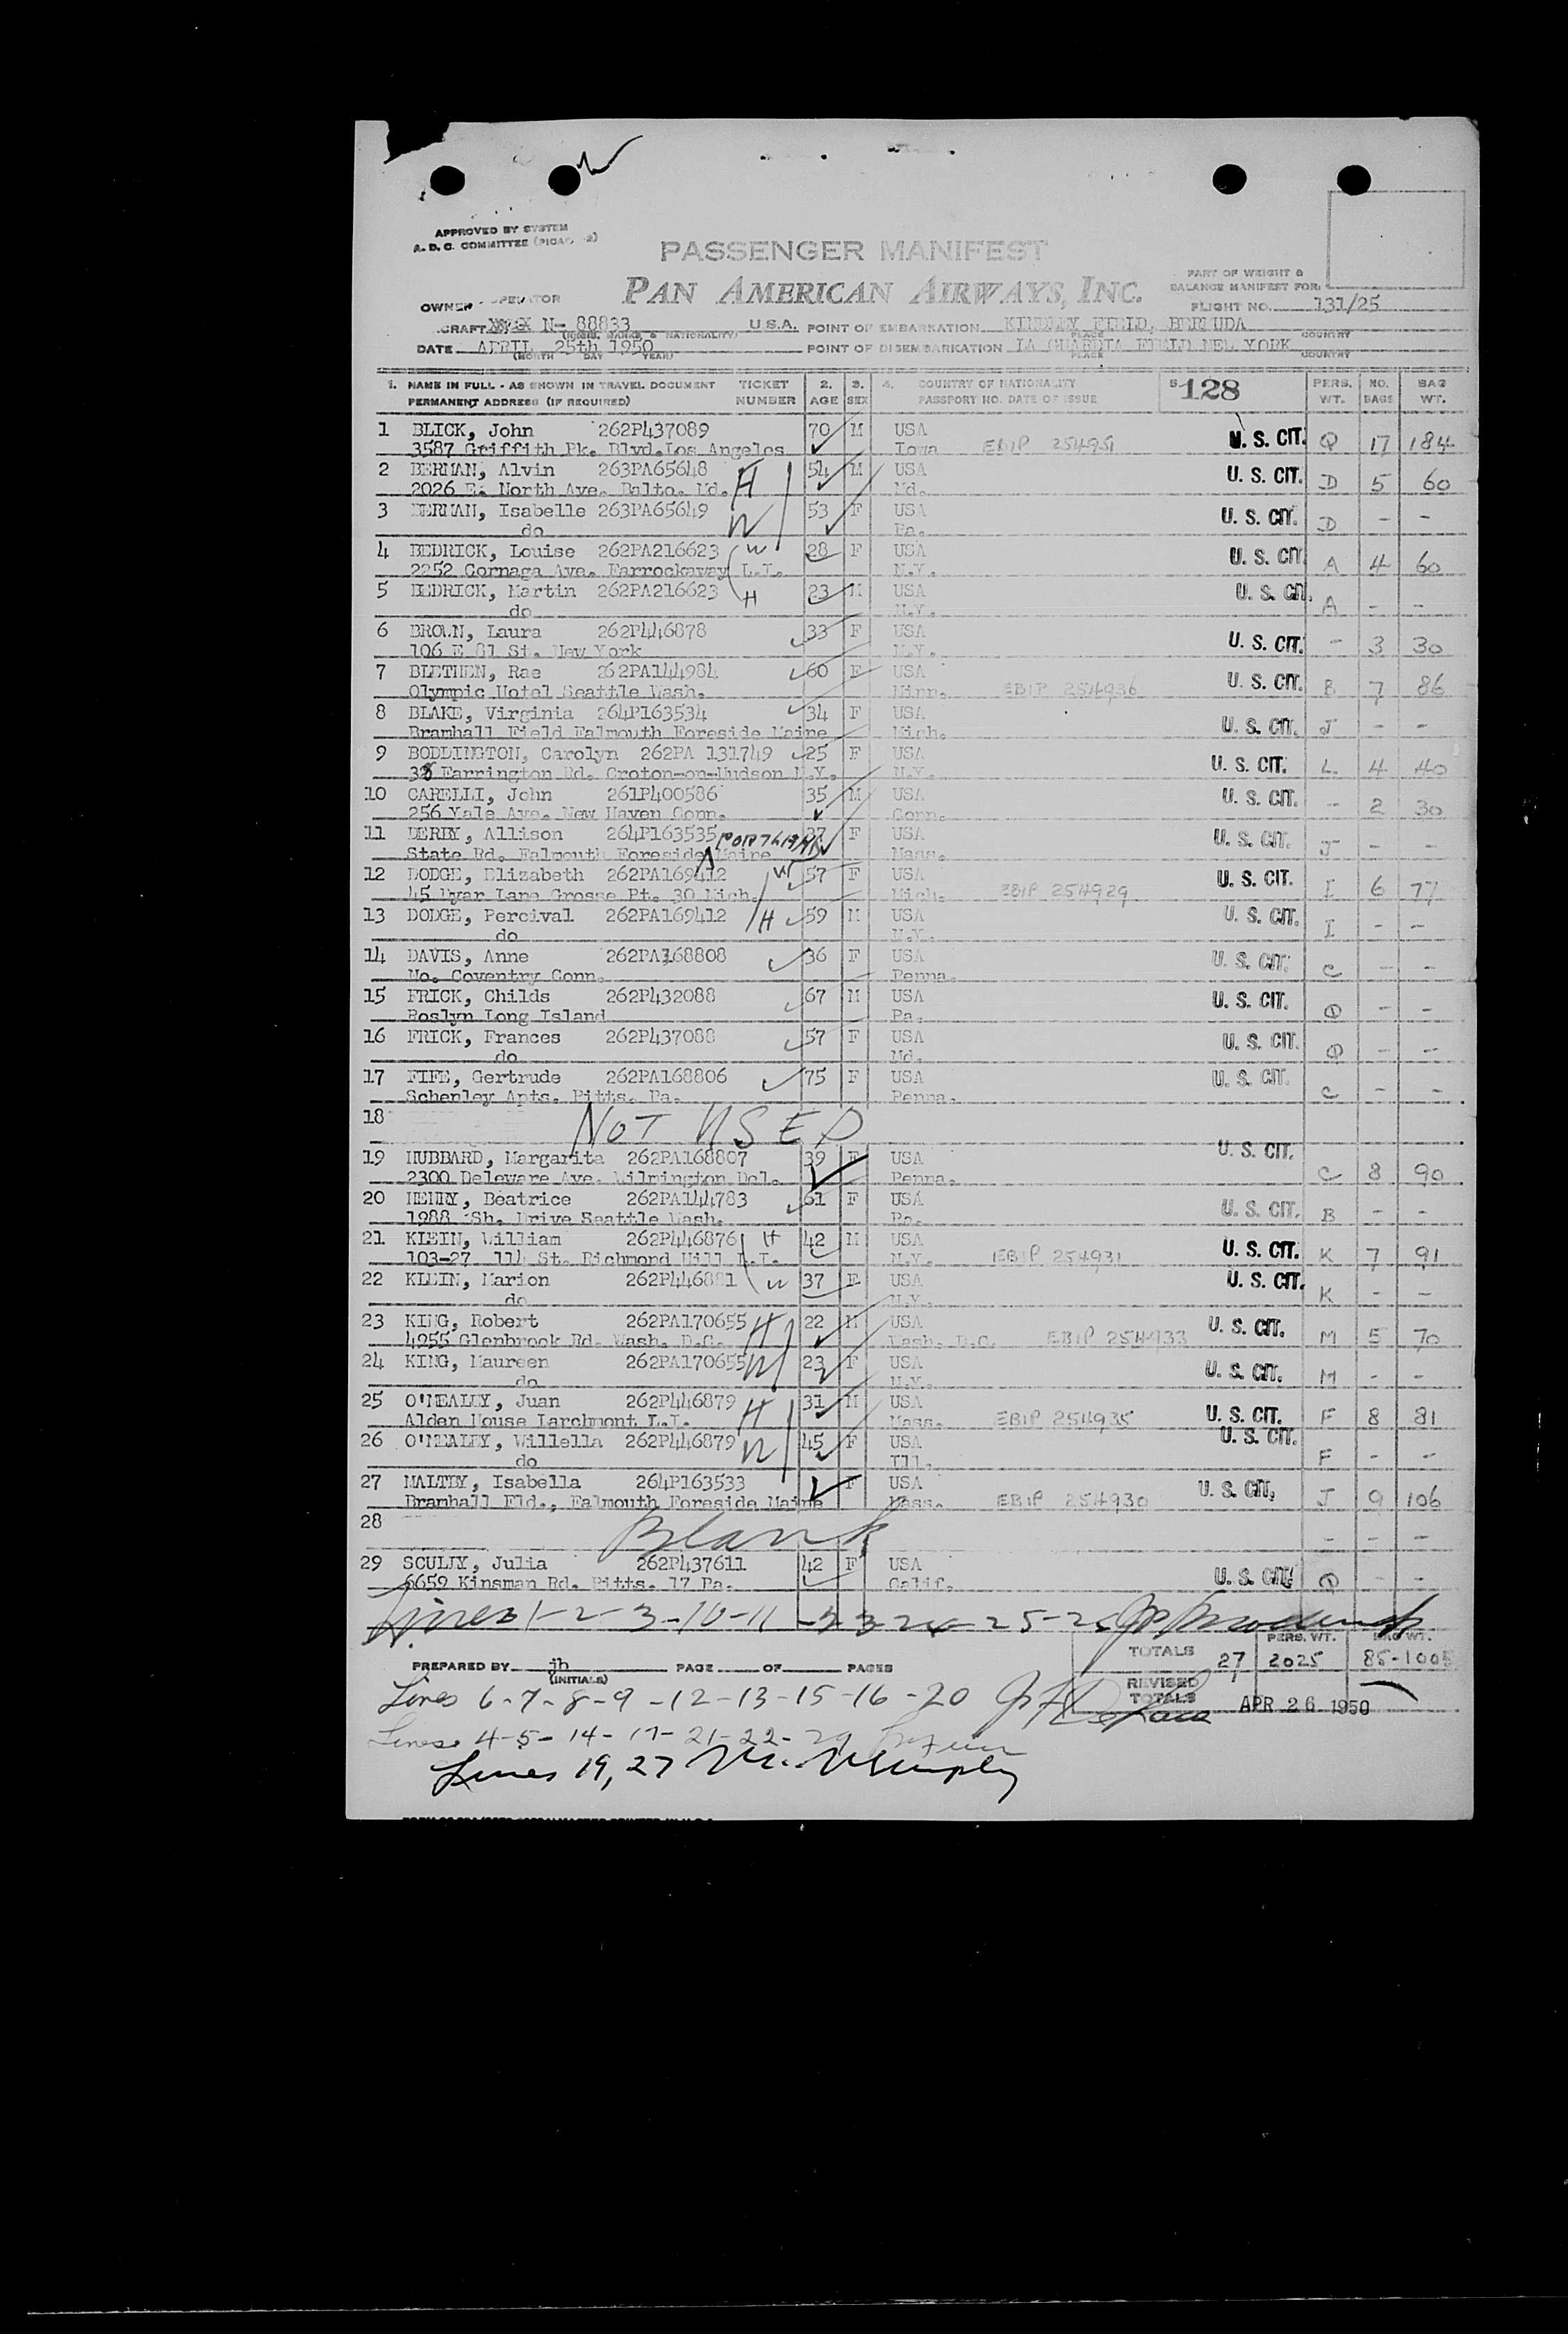 APPROVED BY SYSTEM
A. D. C. COMMITTEE (PICAO -2)
PASSENGER MANIFEST
PAN AMERICAN AIRWAYS, INC.
PART OF WEIGHT &
BALANCE MANIFEST FOR:
OWNER OPERATOR
FLIGHT NO. 131/25
CRAFT N- 88833 U.S.A. POINT OF EMBARKATION KINDLEY FIELD, BERMUDA
(REGIS. MARKS & NATIONALITY) PLACE COUNTRY
DATE APRIL 25th 1950 POINT OF DISEMBARKATION LA GUARDIA FIELD NEW YORK
(MONTH DAY YEAR) PLACE COUNTRY
1. NAME IN FULL - AS SHOWN IN TRAVEL DOCUMENT TICKET 2. 3. 4. COUNTRY OF NATIONALITY 5 128 PERS. NO. BAG
PERMANENT ADDRESS (IF REQUIRED) NUMBER AGE SEX PASSPORT NO. DATE OF ISSUE WT. BAGS WT.
1 BLICK, John 262P437089 70 M USA U. S. CIT. Q 17 184
3587 Griffith Pk. Blvd. Los Angeles Iowa EBIP 254951
2 BERMAN, Alvin 263PA65648 H 54 M USA U. S. CIT. D 5 60
2026 E. North Ave. Balto. Md. Md.
3 BERMAN, Isabelle 263PA65649 W 53 F USA U. S. CIT. D - -
do Pa.
4 BEDRICK, Louise 262PA216623 W 28 F USA U. S. CIT. A 4 60
2252 Cornaga Ave. Farrockaway L.I. N.Y.
5 BEDRICK, Martin 262PA216623 H 23 M USA U. S. CIT. A - -
do N.Y.
6 BROWN, Laura 262P446878 33 F USA U. S. CIT. - 3 30
106 E 81 St. New York N.Y.
7 BLETHEN, Rae 262PA144984 60 F USA U. S. CIT. B 7 86
Olympic Hotel Seattle Wash. Minn. EBIP 254936
8 BLAKE, Virginia 264P163534 34 F USA U. S. CIT. J - -
Bramhall Field Falmouth Foreside Maine Mich.
9 BODDINGTON, Carolyn 262PA 131749 25 F USA U. S. CIT. L 4 40
38 Farrington Rd. Croton-on-Hudson N.Y. N.Y.
10 CARELLI, John 261P400586 35 M USA U. S. CIT. - 2 30
256 Yale Ave. New Haven Conn. Conn.
11 DERBY, Allison 264P163535 PORTLAND 37 F USA U. S. CIT. J - -
State Rd. Falmouth Foreside Maine Mass.
12 DODGE, Elizabeth 262PA169412 W 57 F USA U. S. CIT. I 6 77
45 Dyar Lane Grosse Pt. 30 Mich. Mich. EBIP 254929
13 DODGE, Percival 262PA169412 H 59 M USA U. S. CIT. I - -
do N.Y.
14 DAVIS, Anne 262PA168808 36 F USA U. S. CIT. C - -
No. Coventry Conn. Penna.
15 FRICK, Childs 262P432088 67 M USA U. S. CIT. Q - -
Roslyn Long Island Pa.
16 FRICK, Frances 262P437088 57 F USA U. S. CIT. Q - -
do Md.
17 FIFE, Gertrude 262PA168806 75 F USA U. S. CIT. C - -
Schenley Apts. Pitts. Pa. Penna.
18 NOT USED
19 HUBBARD, Margarita 262PA168807 39 F USA U. S. CIT. C 8 90
2300 Deleware Ave. Wilmington Del. Penna.
20 HENRY, Beatrice 262PA144783 61 F USA U. S. CIT. B - -
1988 Sh. Drive Seattle Wash. Pa.
21 KLEIN, William 262P446876 H 42 M USA U. S. CIT. K 7 91
103-27 114 St. Richmond Hill L.I. N.Y. EBIP 254931
22 KLEIN, Marion 262P446881 W 37 F USA U. S. CIT. K - -
do N.Y.
23 KING, Robert 262PA170655 H 22 M USA U. S. CIT. M 5 70
4955 Glenbrook Rd. Wash. D.C. Wash. D.C. EBIP 254933
24 KING, Maureen 262PA170655 W 23 F USA U. S. CIT. M - -
do N.Y.
25 O'NEALEY, Juan 262P446879 H 31 M USA U. S. CIT. F 8 81
Alden House Larchmont L.I. Mass. EBIP 254935
26 O'NEALEY, Willella 262P446879 W 45 F USA U. S. CIT. F - -
do Ill.
27 MALTBY, Isabella 264P163533 F USA U. S. CIT. J 9 106
Bramhall Fld., Falmouth Foreside Maine Mass. EBIP 254930
28 Blank - - -
29 SCULLY, Julia 262P437611 42 F USA U. S. CIT. Q - -
6659 Kinsman Rd. Pitts. 17 Pa. Calif.
Lines 1-2-3-10-11-23-24-25-26
TOTALS 27 PERS. WT. 2025 BAG WT. 85-1005
PREPARED BY jb PAGE OF PAGES
(INITIALS)
REVISED TOTALS 1 APR 26 1950
Lines 6-7-8-9-12-13-15-16-20
Lines 4-5-14-17-21-22-29
Lines 19, 27